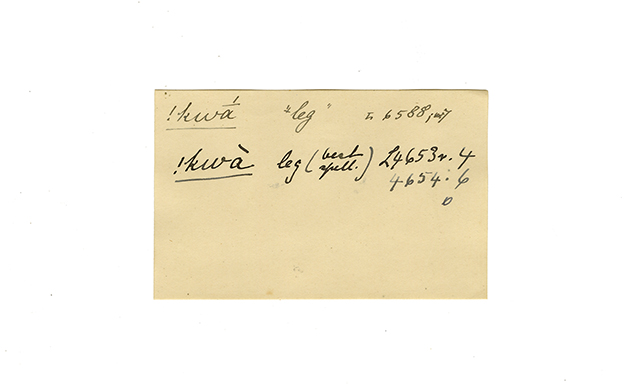 !kwá "leg" L 6588,
!kwà leg (best spell.) L4653r. 4
4654: 6